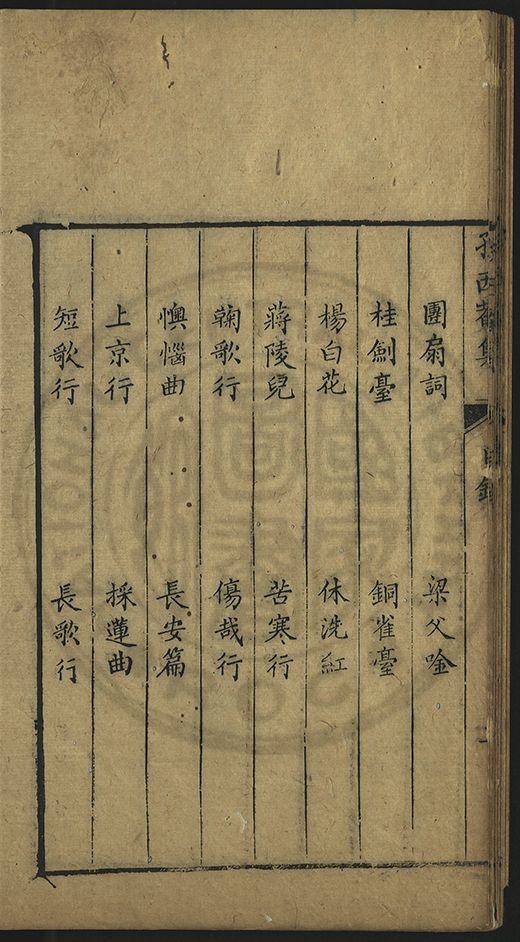 孫西菴集 目錄
團扇詞 梁父唫
桂劎臺 銅雀臺
楊白花 休洗紅
蔣陵兒 苦寒行
鞠歌行 傷哉行
懊惱曲 長安篇
上京行 採蓮曲
短歌行 長歌行